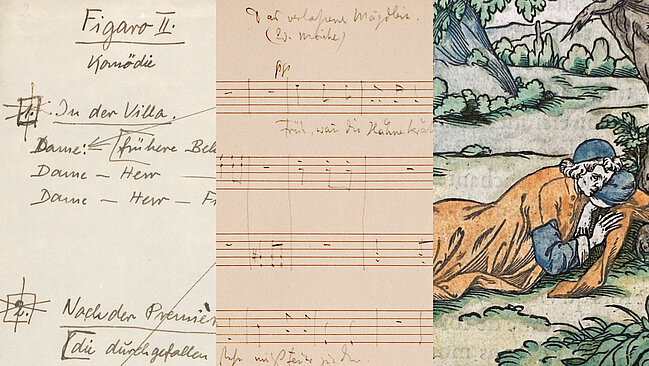 Figaro II.
Komödie
1. In der Villa.
Dame: frühere Bek
Dame – Herr –
Dame – Herr – F
2. Nach der Premièr
die durchgefallen
Das verlassene Mägdlein.
(Ed. Mörike)
Früh, wann die Hähne kräh